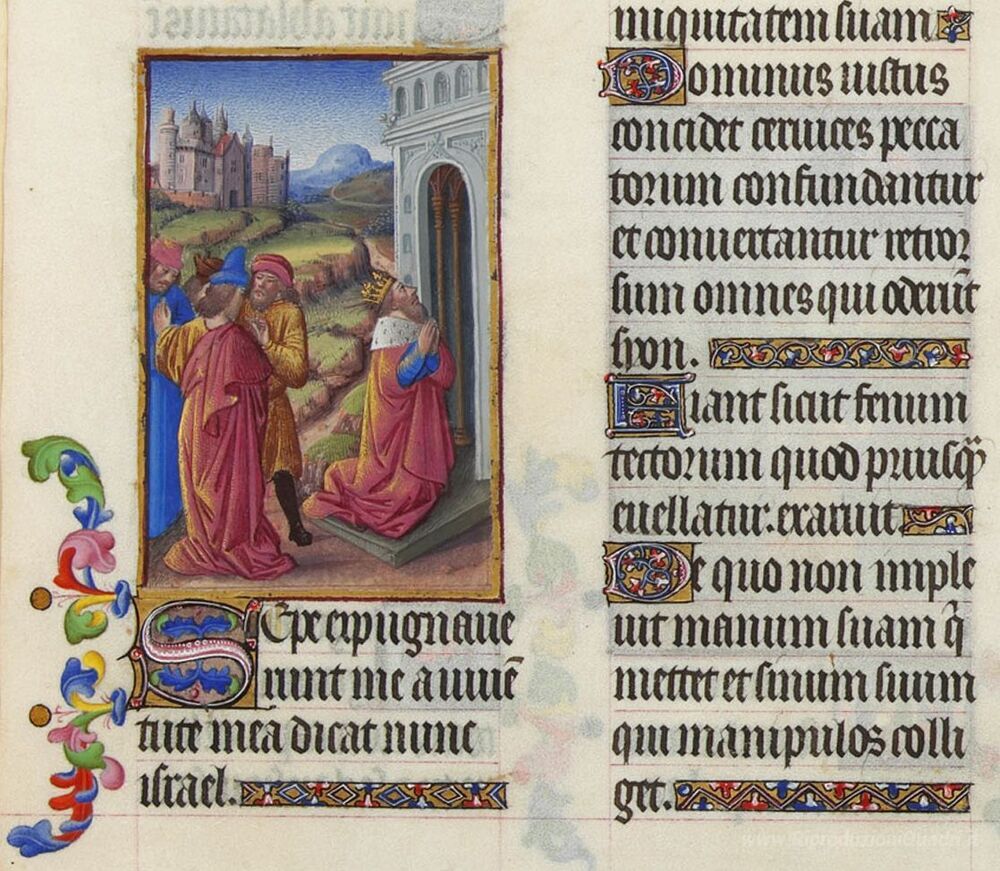 SEpe expugnaue
runt me a iuuē
tute mea dicat nunc
israel.
iniquitatem suam
Dominus iustus
concidet ceruices pecca
torum confundantur
et conuertantur retror
sum omnes qui oderūt
syon.
Fiant sicut fenum
tectorum quod priusq̄
euellatur: exaruit
De quo non imple
uit manum suam q̄
mettet et sinum suum
qui manipulos colli
get.